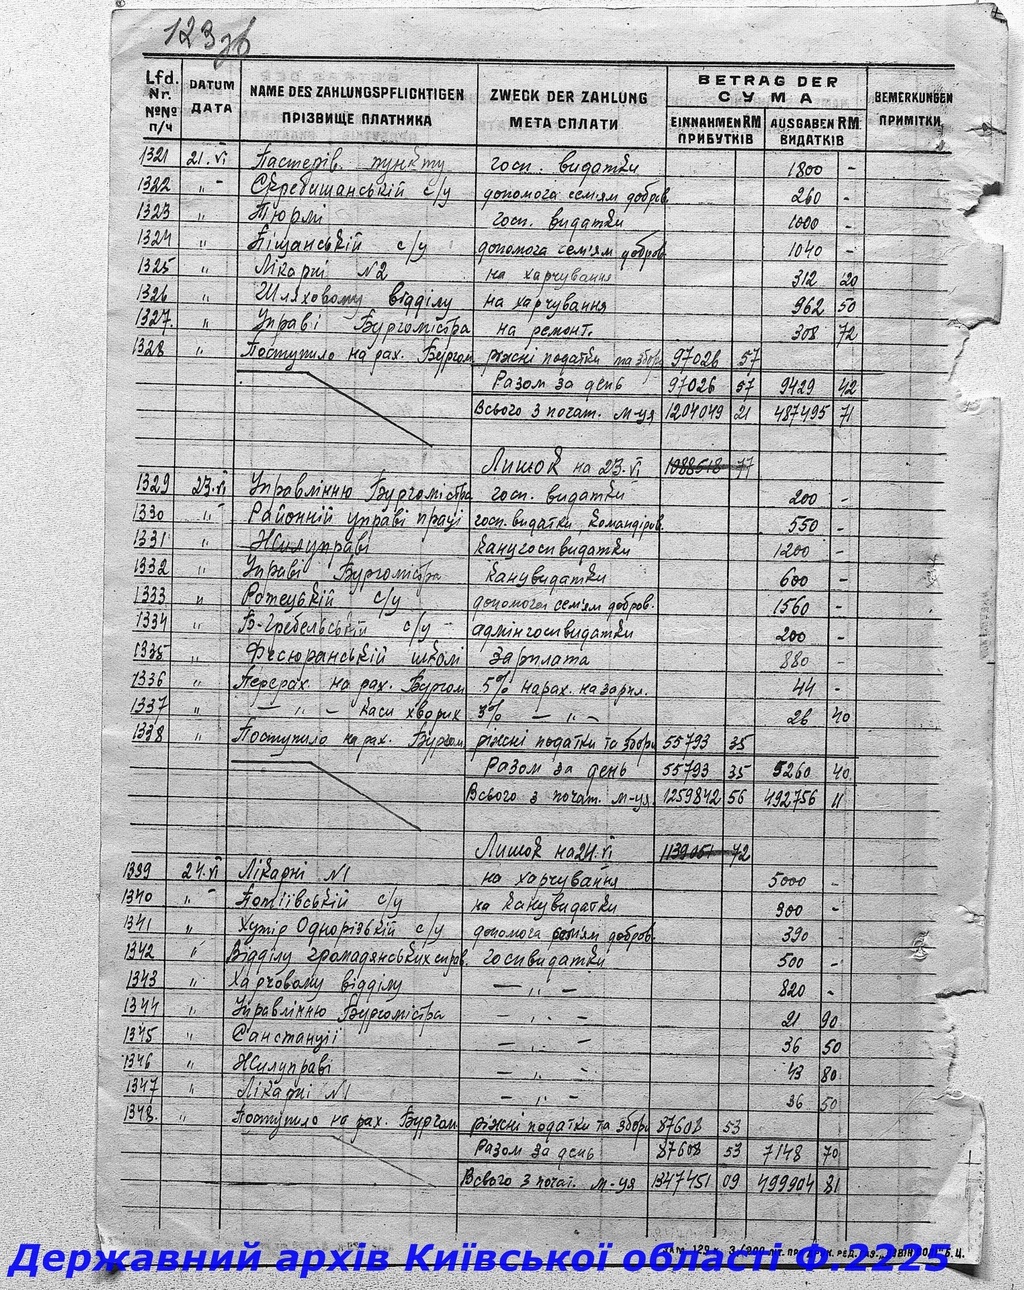 123 зв
Lfd. Nr. №№ п/ч | DATUM ДАТА | NAME DES ZAHLUNGSPFLICHTIGEN ПРІЗВИЩЕ ПЛАТНИКА | ZWECK DER ZAHLUNG МЕТА СПЛАТИ | BETRAG DER СУМА | BEMERKUNGEN ПРИМІТКИ
EINNAHMEN RM ПРИБУТКІВ | AUSGABEN RM ВИДАТКІВ
1321 21.VI Пастерів. пункту госп. видатки 1800 -
1322 " - Скребишанській с/у допомога сем'ям добров. 260 -
1323 " Тюрмі госп. видатки 1000 -
1324 " Піщанській с/у допомога сем'ям добров 1040 -
1325 " Лікарні N2 на харчування 312 20
1326 " Шляховому відділу на харчування 962 50
1327. " Управі Бургомістра на ремонт. 308 72
1328 " Поступило на рах. Бургом ріжні податки та збори 97026 57
Разом за день 97026 57 9429 42
Всього з почат. м-ця 1204049 21 487495 71
Лишок на 23.VI 1088518 77
1329 23.VI Управлінню Бургомістра госп. видатки 200 -
1330 " Районній управі праці госп. видатки, командіров. 550 -
1331 " Жилуправі канцгоспвидатки 1200 -
1332 " Управі Бургомістра канцвидатки 600 -
1333 " с/у допомога сем'ям добров. 1560 -
1334 " Б-Гребельській с/у - адмінгоспвидатки 200 -
1335 " Фесюранській школі зарплата 880 -
1336 " Перерах. на рах. Бургом 5% нарах. на зарпл. 44 -
1337 " — " — каси хворих 3% — " — 26 40
1338 " Поступило на рах. Бургом ріжні податки та збори 55793 35
Разом за день 55793 35 5260 40
Всього з почат. м-ця. 1259842 56 492756 11
Лишок на 24.VI 72
1339 24.VI Лікарні N1 на харчування 5000 -
1340 " Потіївській с/у на канцвидатки 900 -
1341 " Хутір Однорізькій с/у допомога сем'ям добров. 390 -
1342 " Відділу громадянських справ. госпвидатки 500 -
1343 " Харчовому відділу — " — 820 -
1344 " Управлінню Бургомістра — " — 21 90
1345 " Санстанції — " — 36 50
1346 " Жилуправі — " — 43 80
1347 " Лікарні N1 — " — 36 50
1348. " Поступило на рах. Бургом ріжні податки та збори 87608 53
Разом за день 87608 53 7148 70
Всього з почат. м-ця 1347451 09 499904 81
Державний архів Київської області Ф.2225